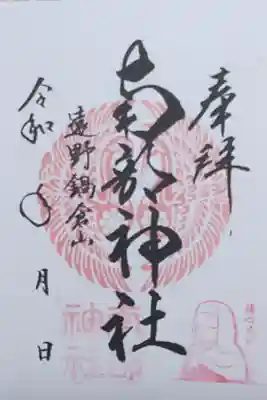 奉拝
南部神社
遠野鍋倉山
令和 年 月 日